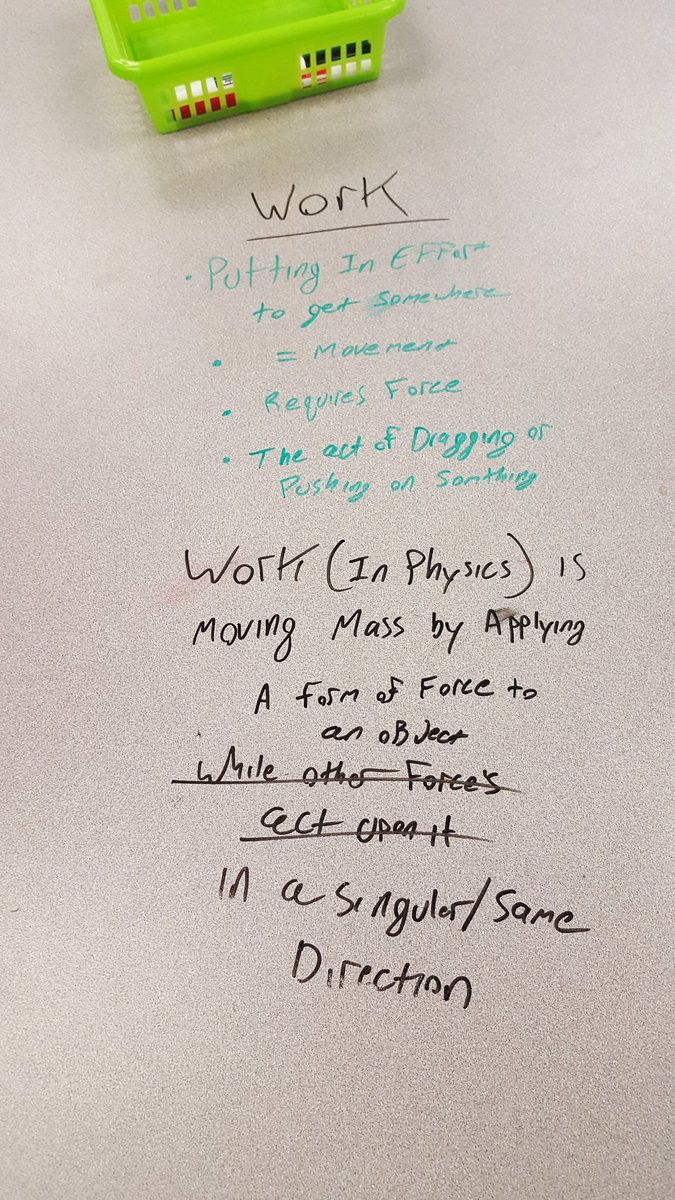 Work
• Putting In Effort
to get somewhere
• = Movement
• Requires Force
• The act of Dragging or
Pushing on Somthing
Work (In Physics) is
Moving Mass by Applying
A form of Force to
an object
While other Force's
act upon it
In a Singuler/Same
Direction